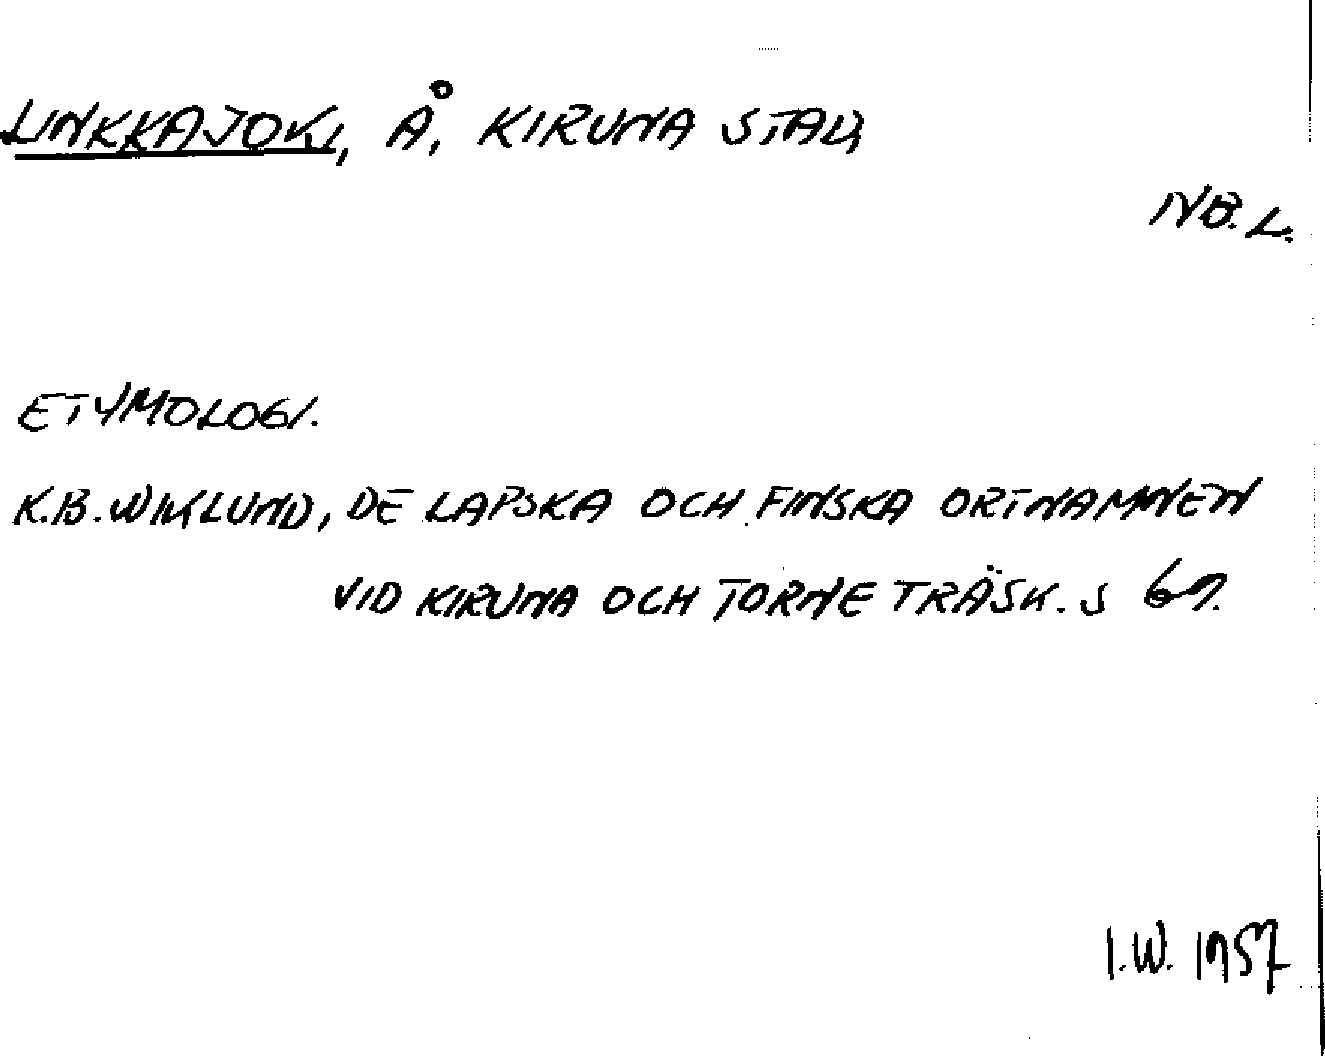 LINKKAJOKI, Å, KIRUNA STAD,
NB. L.
ETYMOLOGI.
K.B. WIKLUND, DE LAPSKA OCH FINSKA ORTNAMNEN
VID KIRUNA OCH TORNE TRÄSK. S 69.
I.W. 1957